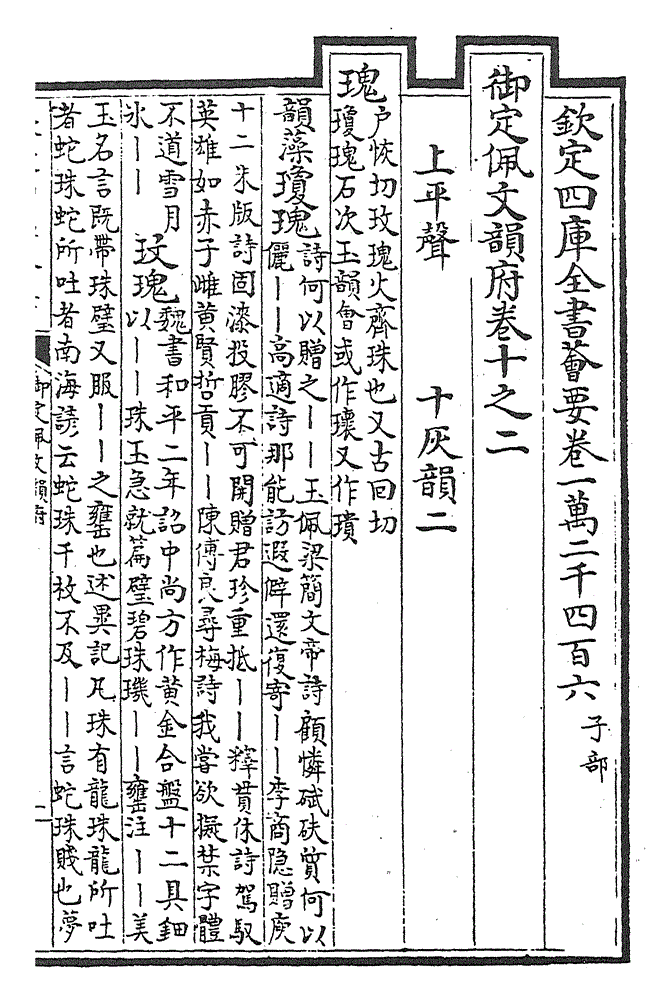 欽定四庫全書薈要卷一萬二千四百六 子部
御定佩文韻府卷十之二
上平聲 十灰韻二
瑰
户恢切玫瑰火齊珠也又古回切
瓊瑰石次玉韻會或作瓌又作璝
韻藻瓊瑰
詩何以贈之丨丨玉佩梁簡文帝詩顧憐碔砆質何以
儷丨丨高適詩那能訪遐僻還復寄丨丨李商隐贈庾
十二朱版詩固漆投膠不可開贈君珍重抵丨丨釋貫休詩駕馭
英雄如赤子雌黄賢哲貢丨丨陳傅良尋梅詩我嘗欲擬禁字體
不道雪月
氷丨丨
玟瑰
魏書和平二年詔中尚方作黄金合盤十二具鈿
以丨丨珠玉急就篇璧碧珠璣丨丨罋注丨丨美
玉名言既帶珠璧又服丨丨之罋也述異記凡珠有龍珠龍所吐
者蛇珠蛇所吐者南海諺云蛇珠千枚不及丨丨言蛇珠賤也夢
御定佩文韻府